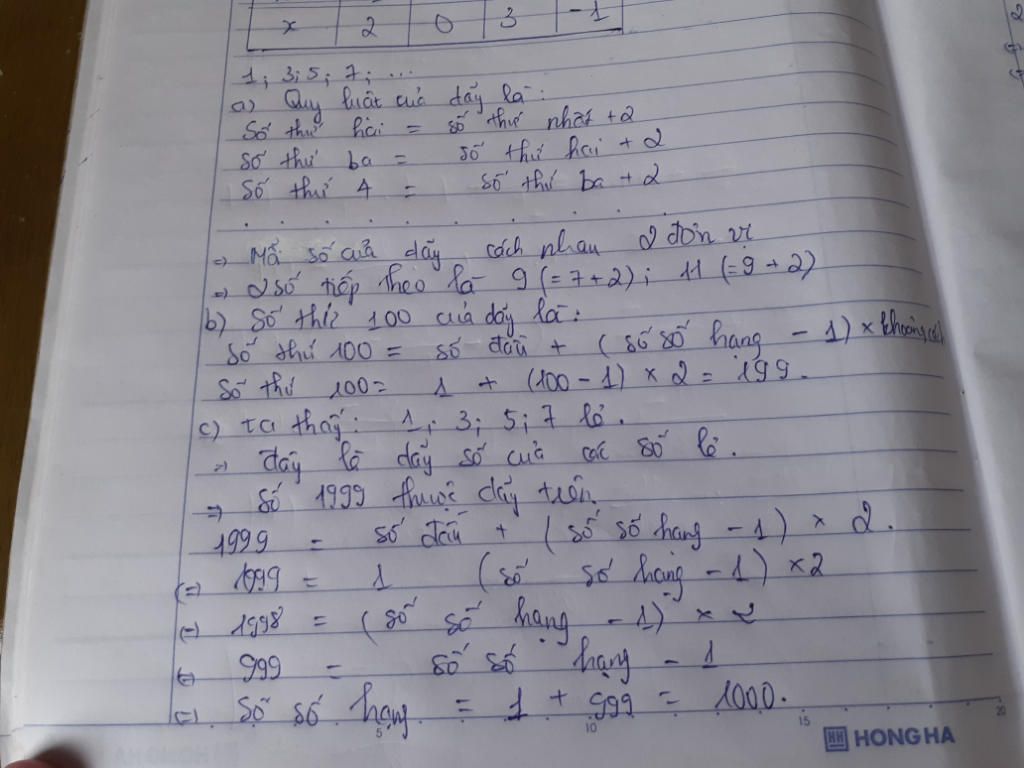 x 2 0 3 -1
1; 3; 5; 7; ...
a) Quy luật của dãy là:
Số thứ hai = số thứ nhất + 2
Số thứ ba = số thứ hai + 2
Số thứ 4 = số thứ ba + 2
. . . . . . . . . .
⇒ số của dãy cách nhau 2 đơn vị
⇒ 2 số tiếp theo là 9 (= 7 + 2); 11 (= 9 + 2)
b) Số thứ 100 của dãy là:
Số thứ 100 = số đầu + (số số hạng - 1) × khoảng cách
Số thứ 100 = 1 + (100 - 1) × 2 = 199.
c) ta thấy: 1; 3; 5; 7 lẻ.
⇒ đây là dãy số của các số lẻ.
⇒ số 1999 thuộc dãy trên.
1999 = số đầu + (số số hạng - 1) × 2.
(=) 1999 = 1 (số số hạng - 1) × 2
(=) 1998 = (số số hạng - 1) × 2
(=) 999 = số số hạng - 1
(=) Số số hạng = 1 + 999 = 1000.
5 10 15 20
HH HONG HA